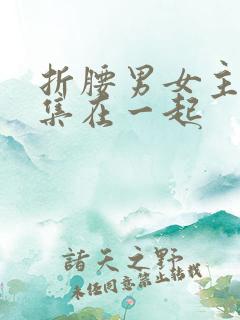 折腰男女主
集在一起
諸天之野
未經同意禁止转载